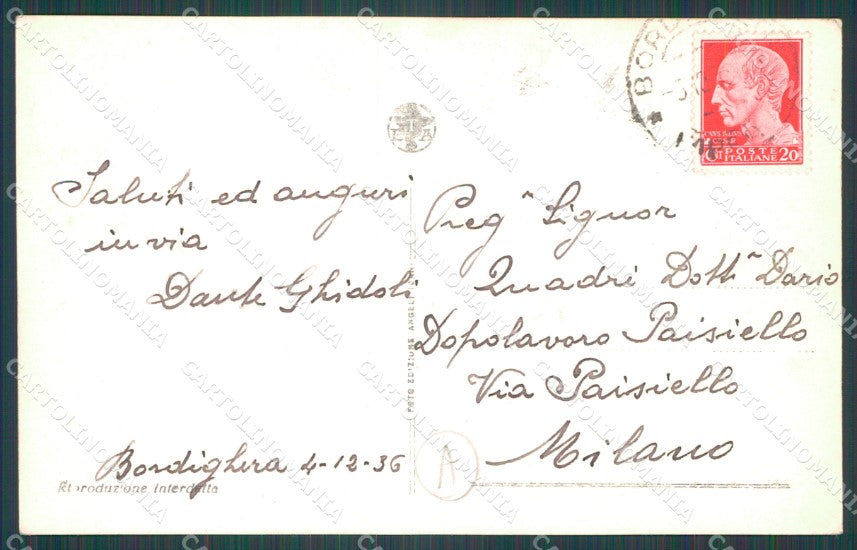 Saluti ed auguri
invia
Dante Ghidoli
Bordighera 4-12-36
Riproduzione Interdetta
FOTO EDIZIONE ANGELI
Preg Signor
Quadri Dott Dario
Dopolavoro Paisiello
Via Paisiello
Milano
A
BORD
POSTE
ITALIANE 20
CARTOLINOMANIA